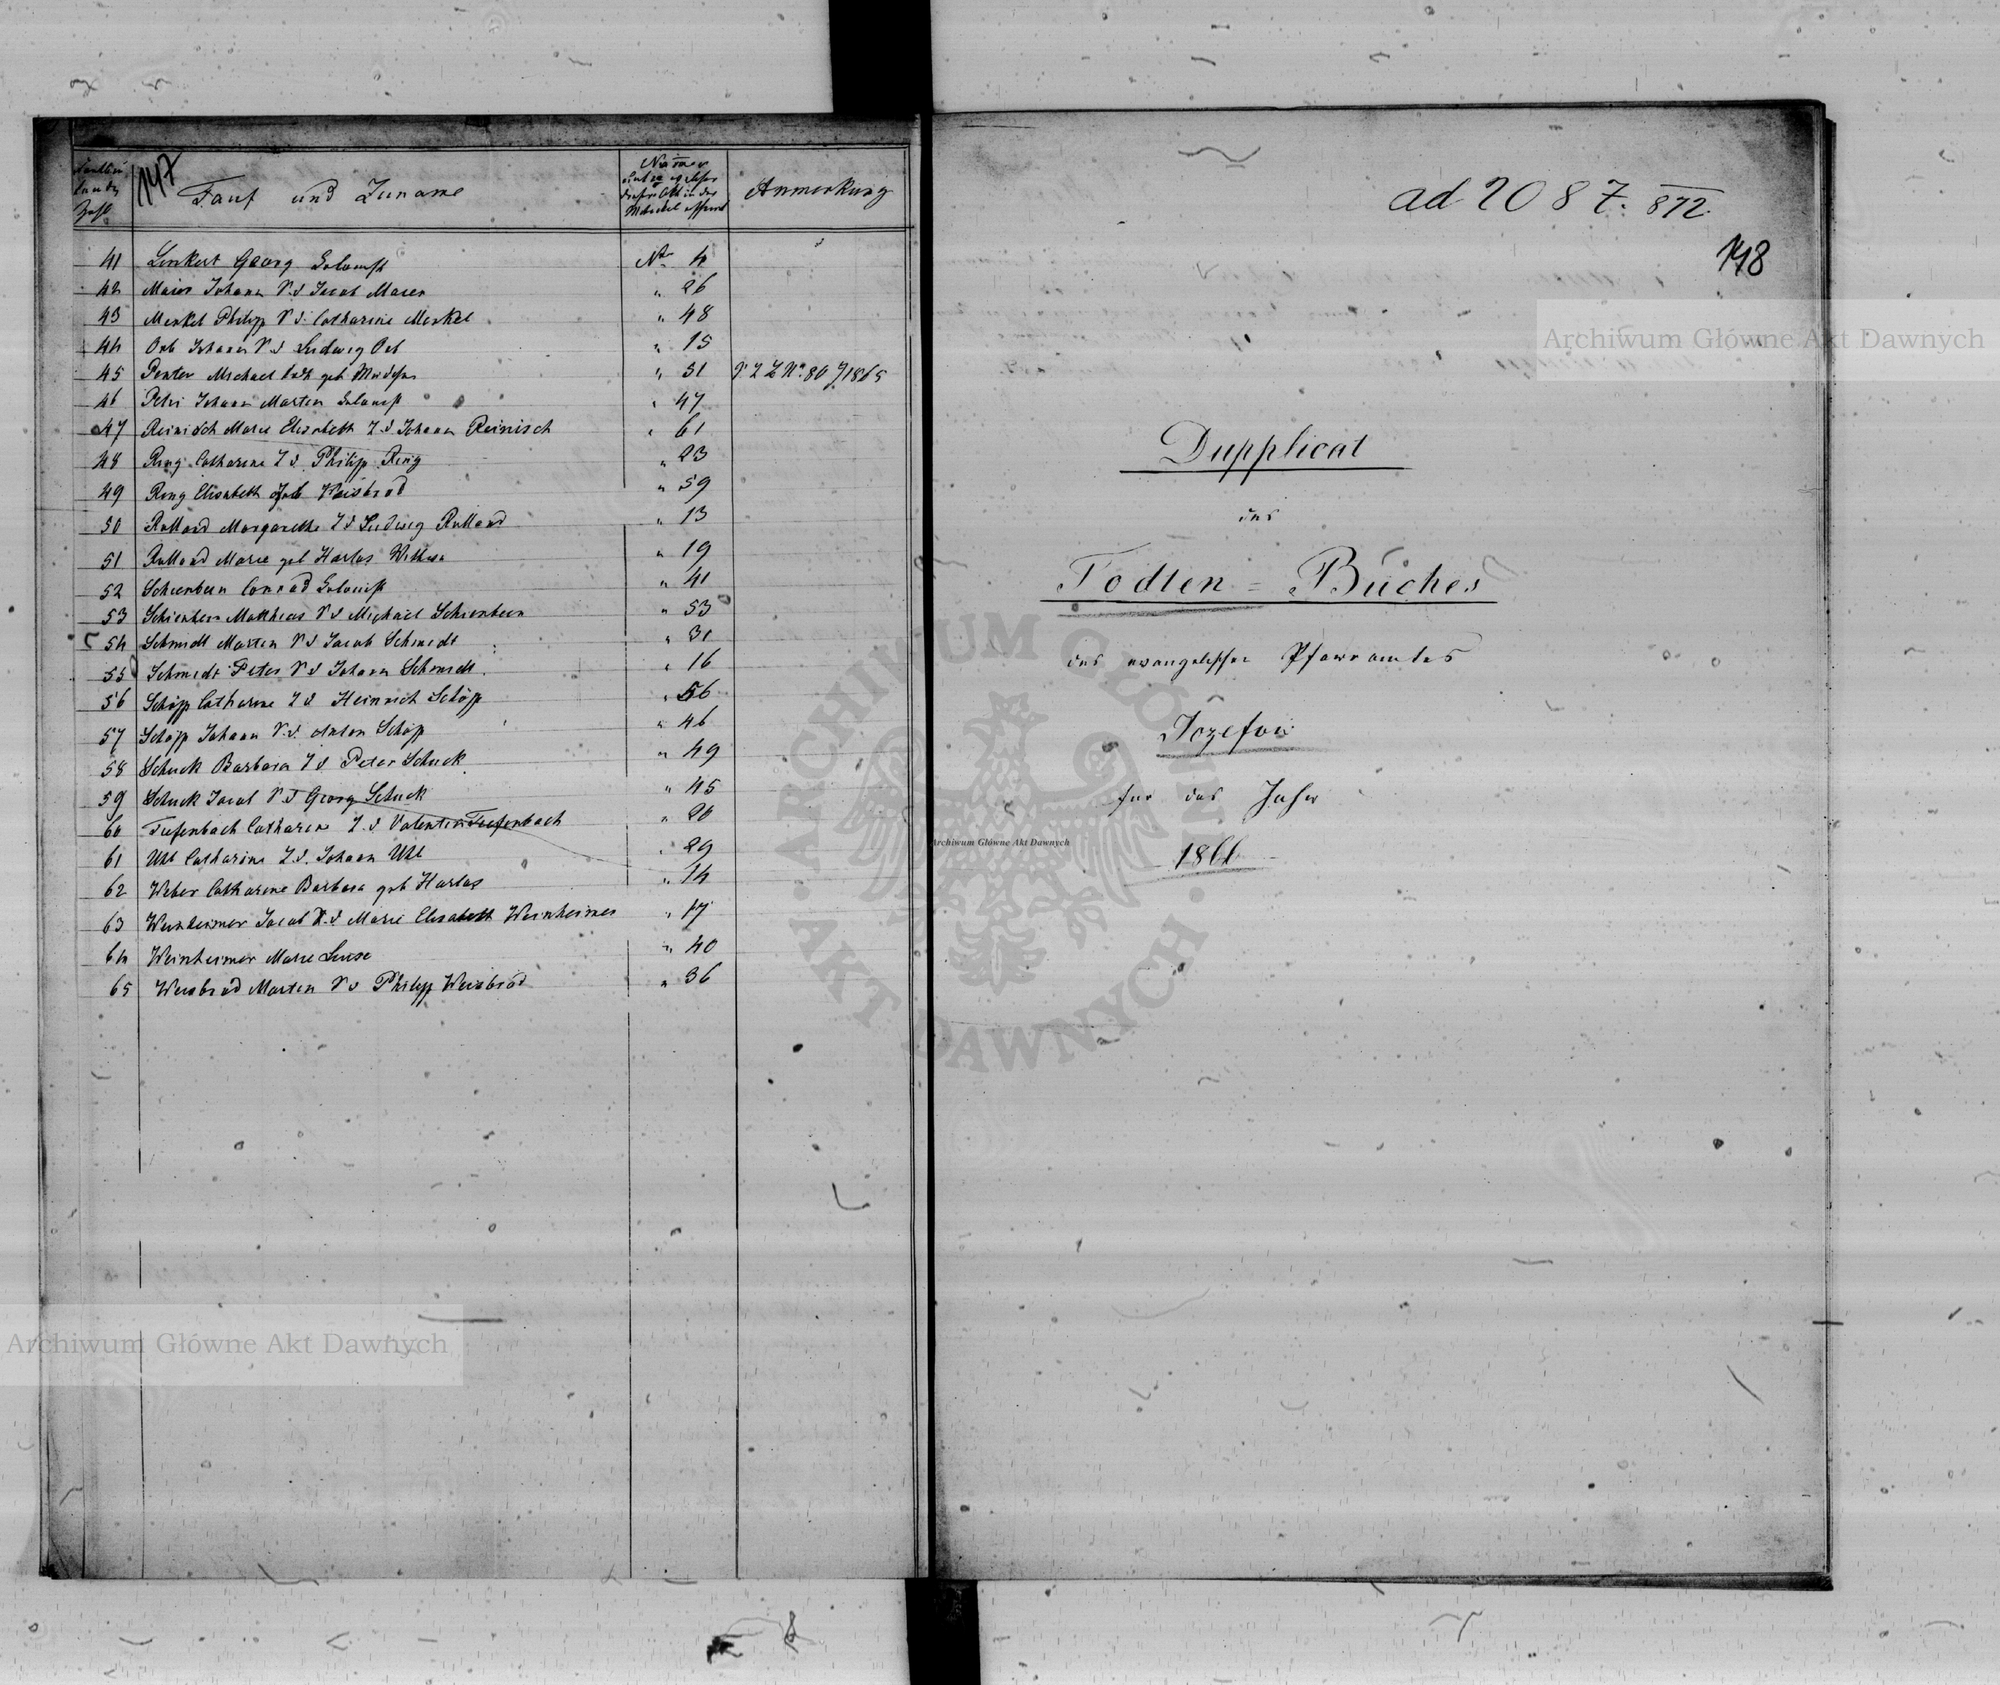 147
Tauf und Zuname
Anmerkung
41 Linkert Georg Colonist No 4
42 Maier Johann S. d. Jacob Maier " 26
43 Merkel Philipp S. d. Catharine Merkel " 48
44 Orb Johann S. d. Ludwig Orb " 15
45 Michael geb " 51 No. 80 1865
46 Petri Johann Martin Colonist " 47
47 Reinisch Marie Elisabeth T. d. Johann Reinisch " 61
48 Ring Catharine T. d. Philipp Ring " 23
49 Ring Elisabeth geb Weisbrod " 59
50 Rulland Margarethe T. d. Ludwig Rulland " 13
51 Rulland Marie geb Harlas Wittwe " 19
52 Schienbein Conrad Colonist " 41
53 Schienbein Matthias S. d. Michael Schienbein " 53
54 Schmidt Martin S. d. Jacob Schmidt " 31
55 Schmidt Peter S. d. Johann Schmidt " 16
56 Schöpp Catharine T. d. Heinrich Schöpp " 56
57 Schöpp Johann S. d. Anton Schöpp " 46
58 Schuck Barbara T. d. Peter Schuck " 49
59 Schuck Jacob S. d. Georg Schuck " 45
60 Tiefenbach Catharine T. d. Valentin Tiefenbach " 20
61 Uhl Catharine T. d. Johann Uhl " 29
62 Weber Catharine Barbara geb Harlas " 14
63 Weinheimer Jacob S. d. Marie Elisabeth Weinheimer " 17
64 Weinheimer Marie Luise " 40
65 Weisbrod Martin S. d. Philipp Weisbrod " 36
ad 2087. 872.
148
Dupplicat
des
Todten = Buches
des evangelischen Pfarramtes
Jozefow
für das Jahr
1866
Archiwum Główne Akt Dawnych
Archiwum Główne Akt Dawnych
Archiwum Główne Akt Dawnych
ARCHIWUM GŁÓWNE AKT DAWNYCH